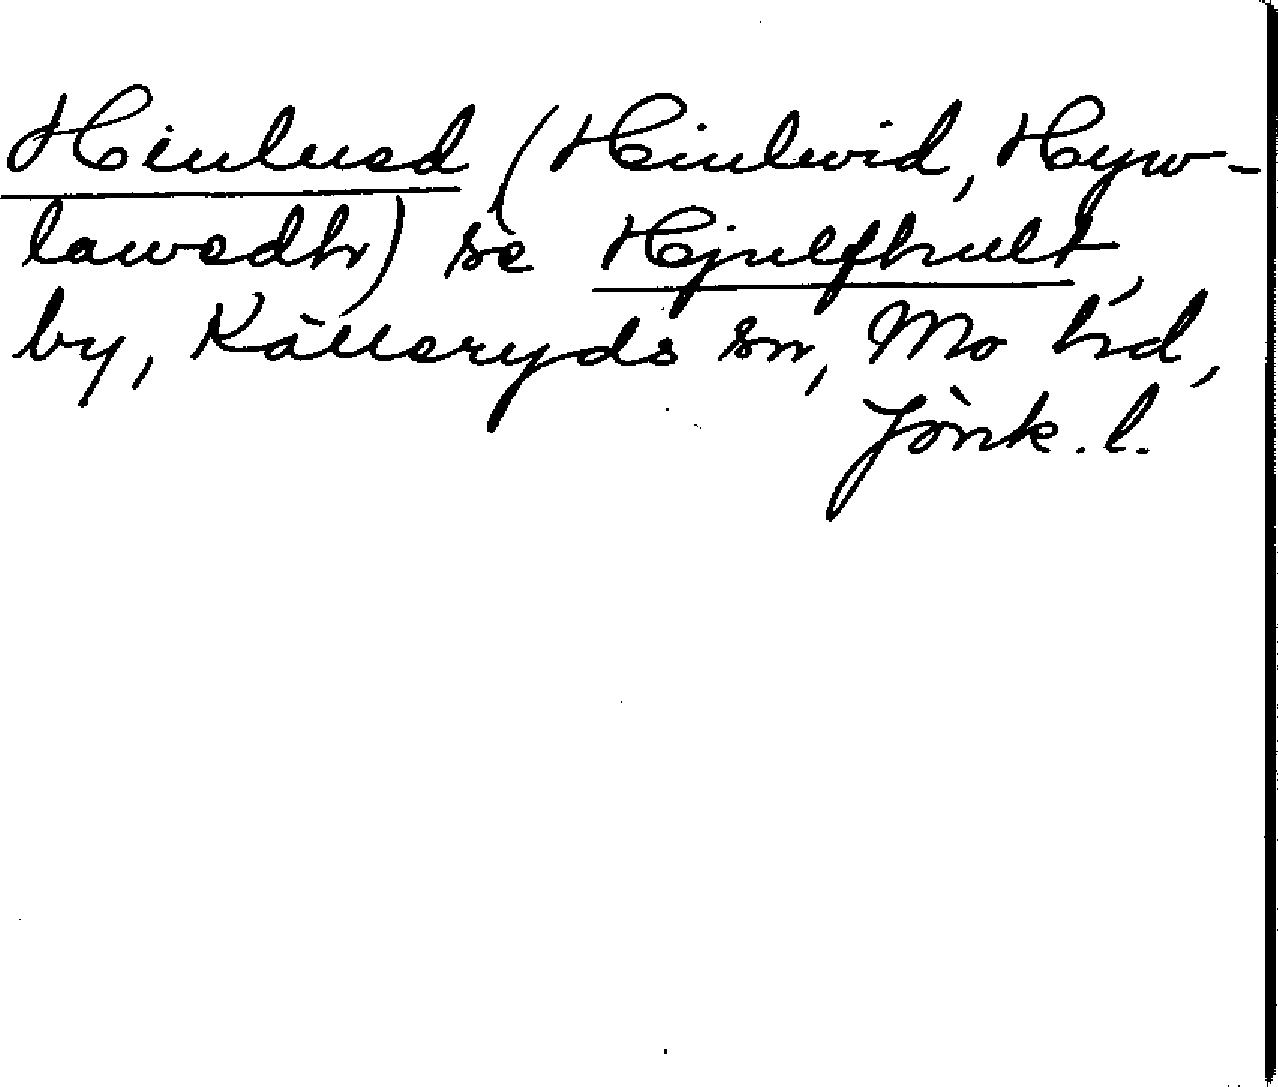 Hiulued (Hiulwid, Hyw-
lawedh) se Hjulfhult,
by, Källeryds sn, Mo hd,
Jönk. l.